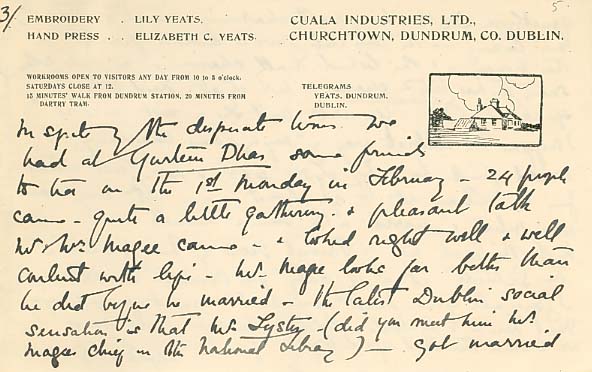 3/
5
EMBROIDERY . LILY YEATS.
HAND PRESS . ELIZABETH C. YEATS.
CUALA INDUSTRIES, LTD.,
CHURCHTOWN, DUNDRUM, CO. DUBLIN.
WORKROOMS OPEN TO VISITORS ANY DAY FROM 10 to 5 o'clock.
SATURDAYS CLOSE AT 12.
15 MINUTES' WALK FROM DUNDRUM STATION, 20 MINUTES FROM
DARTRY TRAM.
TELEGRAMS
YEATS, DUNDRUM,
DUBLIN.
In spite of the desperate times we
had at Gurteen Dhas some friends
to tea on the 1st Monday in February - 24 people
came - quite a little gathering & pleasant talk
Mr & Mrs Magee came - & looked right well & well
content with life - Mr Magee looks far better than
he did before he married - The latest Dublin social
sensation is that Mr Lyster - (did you meet him Mr
Magees chief in the National Library) - got married